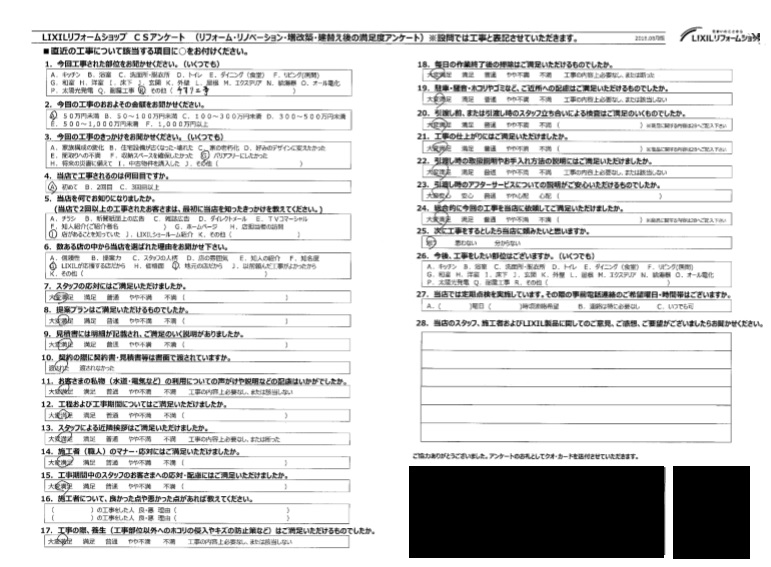 LIXILリフォームショップ CSアンケート (リフォーム・リノベーション・増改築・建替え後の満足度アンケート)※設問では工事と表記させていただきます。
LIXILリフォームショップ
■直近の工事について該当する項目に○をお付けください。
1. 今回工事された部位をお聞かせください。(いくつでも)
A. キッチン B. 浴室 C. 洗面所・脱衣所 D. トイレ E. ダイニング(食堂) F. リビング(居間)
G. 和室 H. 洋室 I. 床下 J. 玄関 K. 外壁 L. 屋根 M. エクステリア N. 給湯器 O. オール電化
P. 太陽光発電 Q. 耐震工事 R. その他(
2. 今回の工事のおおよその金額をお聞かせください。
A. 50万円未満 B. 50~100万円未満 C. 100~300万円未満 D. 300~500万円未満
E. 500~1,000万円未満 F. 1,000万円以上
3. 今回の工事のきっかけをお聞かせください。(いくつでも)
A. 家族構成の変化 B. 住宅設備が古くなった・壊れた C. 家の老朽化 D. 好みのデザインに変えたかった
E. 間取りへの不満 F. 収納スペースを確保したかった G. バリアフリーにしたかった
H. 将来の災害に備えて I. 中古物件を購入した J. その他( )
4. 当店で工事されるのは何回目ですか。
A. 初めて B. 2回目 C. 3回目以上
5. 当店を何でお知りになりましたか。
(当店で2回以上の工事されたお客さまは、最初に当店を知ったきっかけを教えてください。)
A. チラシ B. 新聞紙面上の広告 C. 雑誌広告 D. ダイレクトメール E. TVコマーシャル
F. 知人紹介(ご紹介者名 ) G. ホームページ H. 店担当者の訪問
I. 店があることを知っていた J. LIXILショールーム紹介 K. その他( )
6. 数ある店の中から当店を選ばれた理由をお聞かせ下さい。
A. 信頼性 B. 提案力 C. スタッフの人柄 D. 店の雰囲気 E. 知人の紹介 F. 知名度
G. LIXILが応援する店だから H. 価格面 I. 地元の店だから J. 以前頼んだ工事がよかったから
K. その他( )
7. スタッフの応対にはご満足いただけましたか。
大変満足 満足 普通 やや不満 不満( )
8. 提案プランはご満足いただけるものでしたか。
大変満足 満足 普通 やや不満 不満( )
9. 見積書には明細が記載され、ご満足のいく説明がありましたか。
大変満足 満足 普通 やや不満 不満( )
10. 契約の際に契約書・見積書等は書面で渡されていますか。
渡された 渡されなかった
11. お客さまの私物(水道・電気など)の利用についての声がけや説明などの配慮はいかがでしたか。
大変満足 満足 普通 やや不満 不満 工事の内容上必要なし、または該当しない
12. 工程および工事期間についてはご満足いただけましたか。
大変満足 満足 普通 やや不満 不満( )
13. スタッフによる近隣挨拶はご満足いただけましたか。
大変満足 満足 普通 やや不満 不満 工事の内容上必要なし、または断った
14. 施工者(職人)のマナー・応対にはご満足いただけましたか。
大変満足 満足 普通 やや不満 不満( )
15. 工事期間中のスタッフのお客さまへの応対・配慮にはご満足いただけましたか。
大変満足 満足 普通 やや不満 不満( )
16. 施工者について、良かった点や悪かった点があれば教えてください。
( )の工事をした人 良・悪 理由( )
( )の工事をした人 良・悪 理由( )
17. 工事の際、養生(工事部位以外へのホコリの侵入やキズの防止策など)はご満足いただけるものでしたか。
大変満足 満足 普通 やや不満 不満 工事の内容上必要なし、または該当しない
18. 毎日の作業終了後の掃除はご満足いただけるものでしたか。
大変満足 満足 普通 やや不満 不満 工事の内容上必要なし、または断った
19. 駐車・騒音・ホコリやゴミなど、ご近所への配慮はご満足いただけるものでしたか。
大変満足 満足 普通 やや不満 不満 工事の内容上必要なし、または該当しない
20. 引渡し前、または引渡し時のスタッフ立ち合いによる検査はご満足のいくものでしたか。
大変満足 満足 普通 やや不満 不満( )
21. 工事の仕上がりにはご満足いただけましたか。
大変満足 満足 普通 やや不満 不満( )
22. 引渡し時の取扱説明やお手入れ方法の説明にはご満足いただけましたか。
大変満足 満足 普通 やや不満 不満 工事の内容上必要なし、または該当しない
23. 引渡し時のアフターサービスについての説明がご安心いただけるものでしたか。
大変安心 安心 普通 やや心配 心配( )
24. 総合的に今回の工事を当店に依頼してご満足いただけましたか。
大変満足 満足 普通 やや不満 不満( )
25. 次に工事をするとしたら当店に頼みたいと思いますか。
思う 思わない 分からない
26. 今後、工事をしたい部位はございますか。(いくつでも)
A. キッチン B. 浴室 C. 洗面所・脱衣所 D. トイレ E. ダイニング(食堂) F. リビング(居間)
G. 和室 H. 洋室 I. 床下 J. 玄関 K. 外壁 L. 屋根 M. エクステリア N. 給湯器 O. オール電化
P. 太陽光発電 Q. 耐震工事 R. その他( )
27. 当店では定期点検を実施しています。その際の事前電話連絡のご希望曜日・時間帯はございますか。
A. ( )曜日( )時頃連絡希望 B. 連絡は特に必要なし C. いつでも可
28. 当店のスタッフ、施工者およびLIXIL製品に関してのご意見、ご感想、ご要望がございましたらお聞かせください。
ご協力ありがとうございました。アンケートのお礼としてクオ・カードを送付させていただきます。